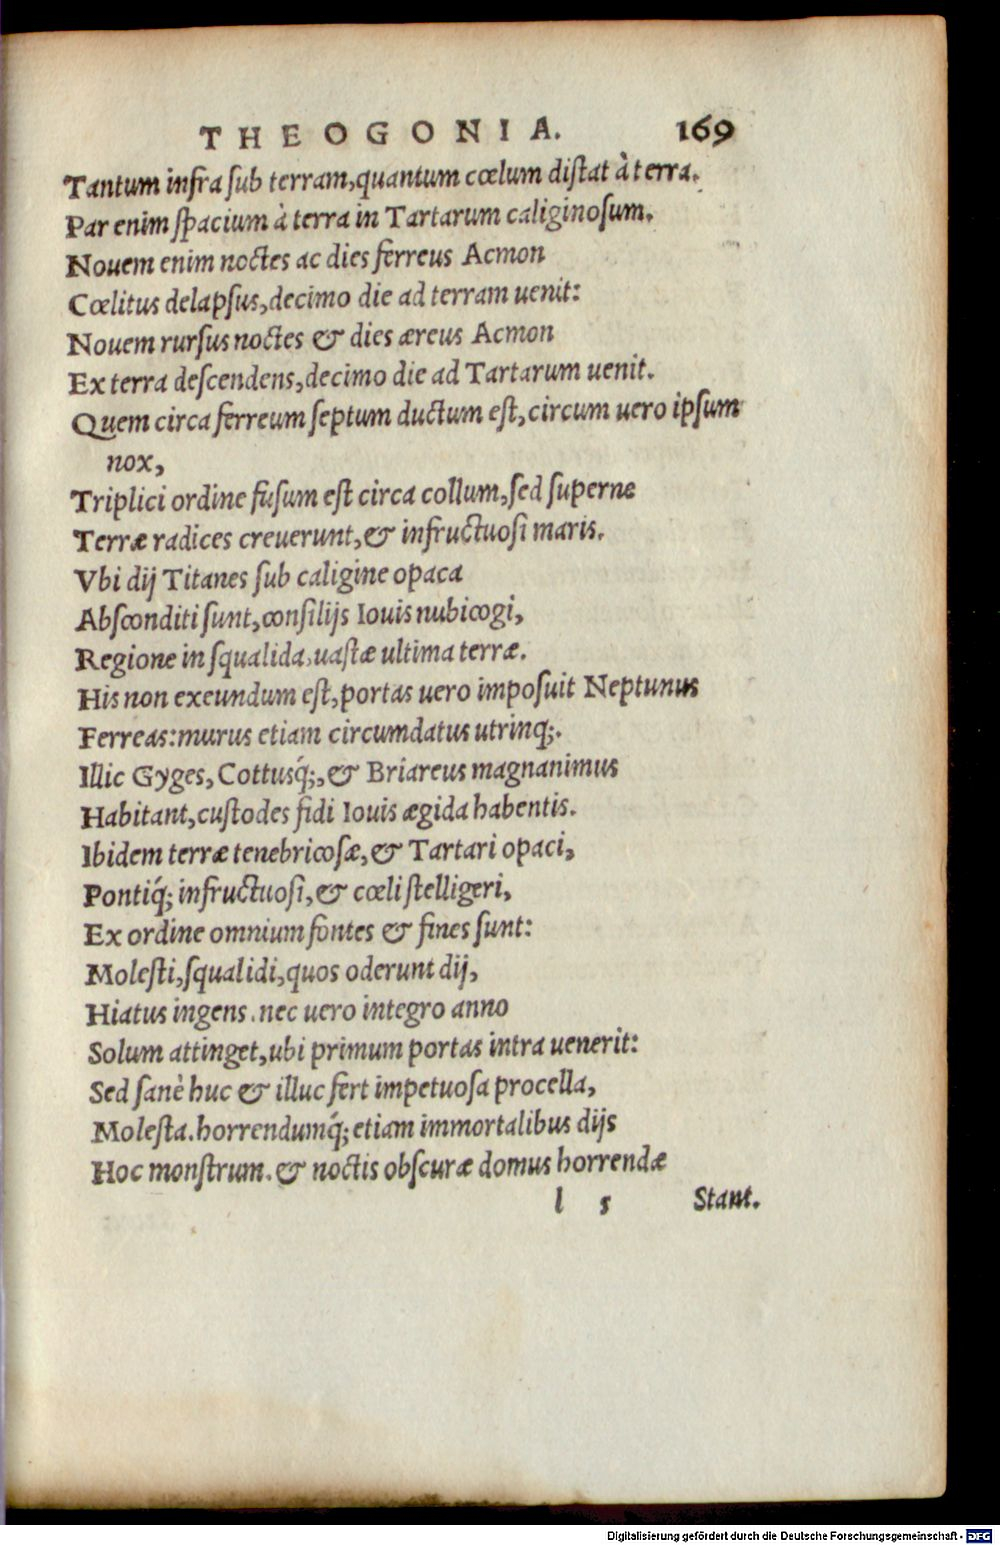 THEOGONIA. 169
Tantum infra sub terram,quantum cœlum distat à terra.
Par enim spacium à terra in Tartarum caliginosum.
Nouem enim noctes ac dies ferreus Acmon
Cœlitus delapsus,decimo die ad terram uenit:
Nouem rursus noctes & dies æreus Acmon
Ex terra descendens,decimo die ad Tartarum uenit.
Quem circa ferreum septum ductum est,circum uero ipsum
nox,
Triplici ordine fusum est circa collum,sed superne
Terræ radices creuerunt,& infructuosi maris.
Vbi dij Titanes sub caligine opaca
Absconditi sunt,consilijs Iouis nubicogi,
Regione in squalida,uastæ ultima terræ.
His non exeundum est,portas uero imposuit Neptunus
Ferreas:murus etiam circumdatus utrinq;.
Illic Gyges, Cottusq́;,& Briareus magnanimus
Habitant,custodes fidi Iouis ægida habentis.
Ibidem terræ tenebricosæ,& Tartari opaci,
Pontiq́; infructuosi,& cœli stelligeri,
Ex ordine omnium fontes & fines sunt:
Molesti,squalidi,quos oderunt dij,
Hiatus ingens.nec uero integro anno
Solum attinget,ubi primum portas intra uenerit:
Sed sanè huc & illuc fert impetuosa procella,
Molesta.horrendumq́; etiam immortalibus dijs
Hoc monstrum.& noctis obscuræ domus horrendæ
l s Stant.
Digitalisierung gefördert durch die Deutsche Forschungsgemeinschaft - DFG